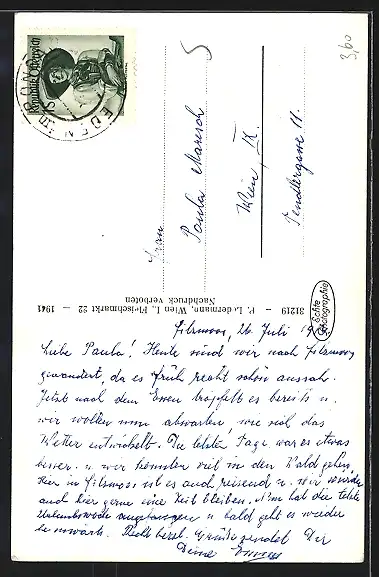 3,60
Republik Österreich
EBEN
Frau
Paula Maresch
Wien IX.
Pendlergasse 11.
31219 – P. Ledermann, Wien I., Fleischmarkt 22 – 1941
Nachdruck verboten
Echte
Photographie
Filzmoos, 26. Juli
Liebe Paula! Heute sind wir nach Filzmoos
gewandert, da es früh recht schön aussah.
Jetzt nach dem Essen tröpfelt es bereits u.
wir wollen nun abwarten, wie sich das
Wetter entwickelt. Die letzten Tage war es etwas
besser u. wir konnten viel in den Wald gehen.
Hier in Filzmoos ist es auch reizend u. wir würden
auch hier gerne eine Zeit bleiben. Nun hat die letzte
Urlaubswoche angefangen u. bald geht es wieder
heimwärts. Recht herzl. Grüße sendet Dir
Deine